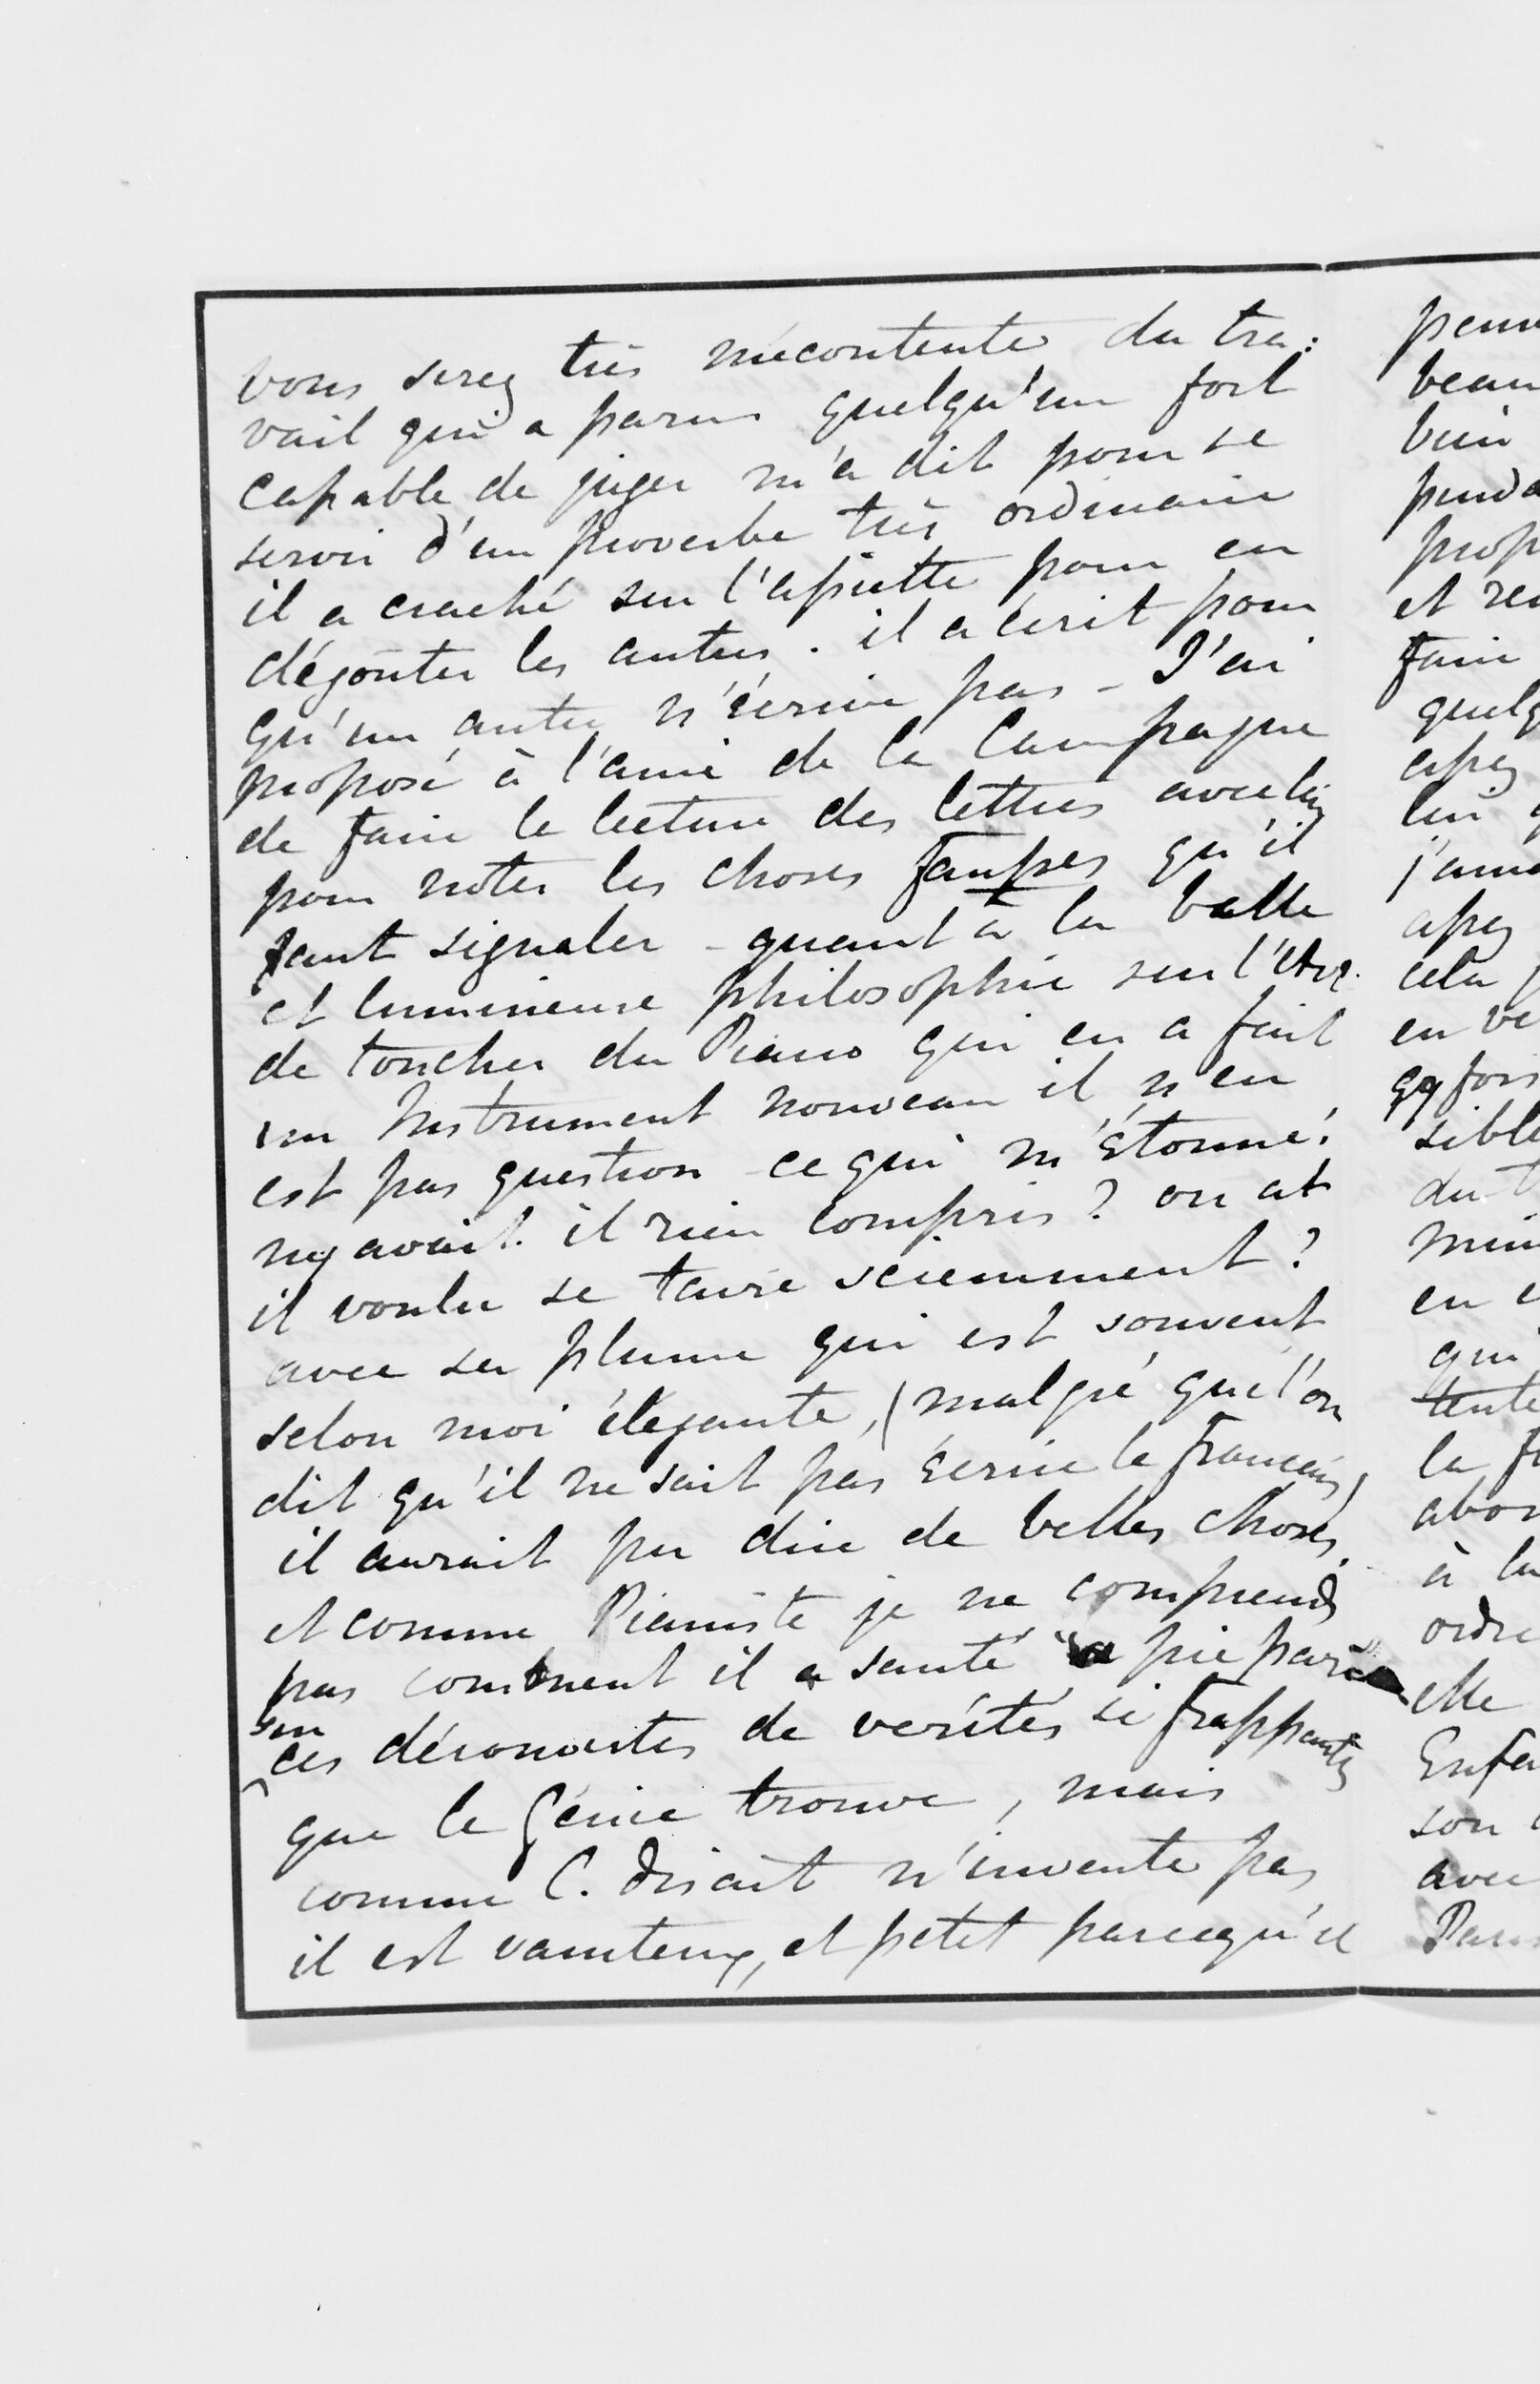 vous serez très mécontente du tra:
vail qui a paru quelqu'un fort
capable de juger m'a dit pour se
servir d'un proverbe très ordinaire
il a craché sur l'assiette pour en
dégoûter les autres. il a écrit pour
qu'un autre n'écrive pas - J'ai
proposé à l'amie de la Campagne
de faire la lecture des lettres avec lui
pour noter les choses fausses qu'il
faut signaler - quant à la belle
et lumineuse philosophie sur l'
de toucher du Piano qui en a fait
un Instrument nouveau il n'en
est pas question - ce qui m'étonne!
n'y avait-il rien compris? ou at
il voulu se taire sciemment?
avec sa plume qui est souvent
selon moi élégante, (malgré que l'on
dit qu'il ne sait pas écrire le français)
il aurait pu dire de belles choses,
et comme Pianiste je ne comprends
pas comment il a sauté à pié par
sur
ces découvertes de verités si frappantes
que le Génie trouve, mais
comme C. disait n'invente pas
il est vaniteux, et petit parcequ'il
peuv
beau
bien
penda
prop
et re
faire
quelq
assez
lui
j'aim
assez
cela
en ve
qq fois
sible
du
mini
en
qui
tente
la f
abor
à la
ordre
elle
Enfa
son
avec
Paris